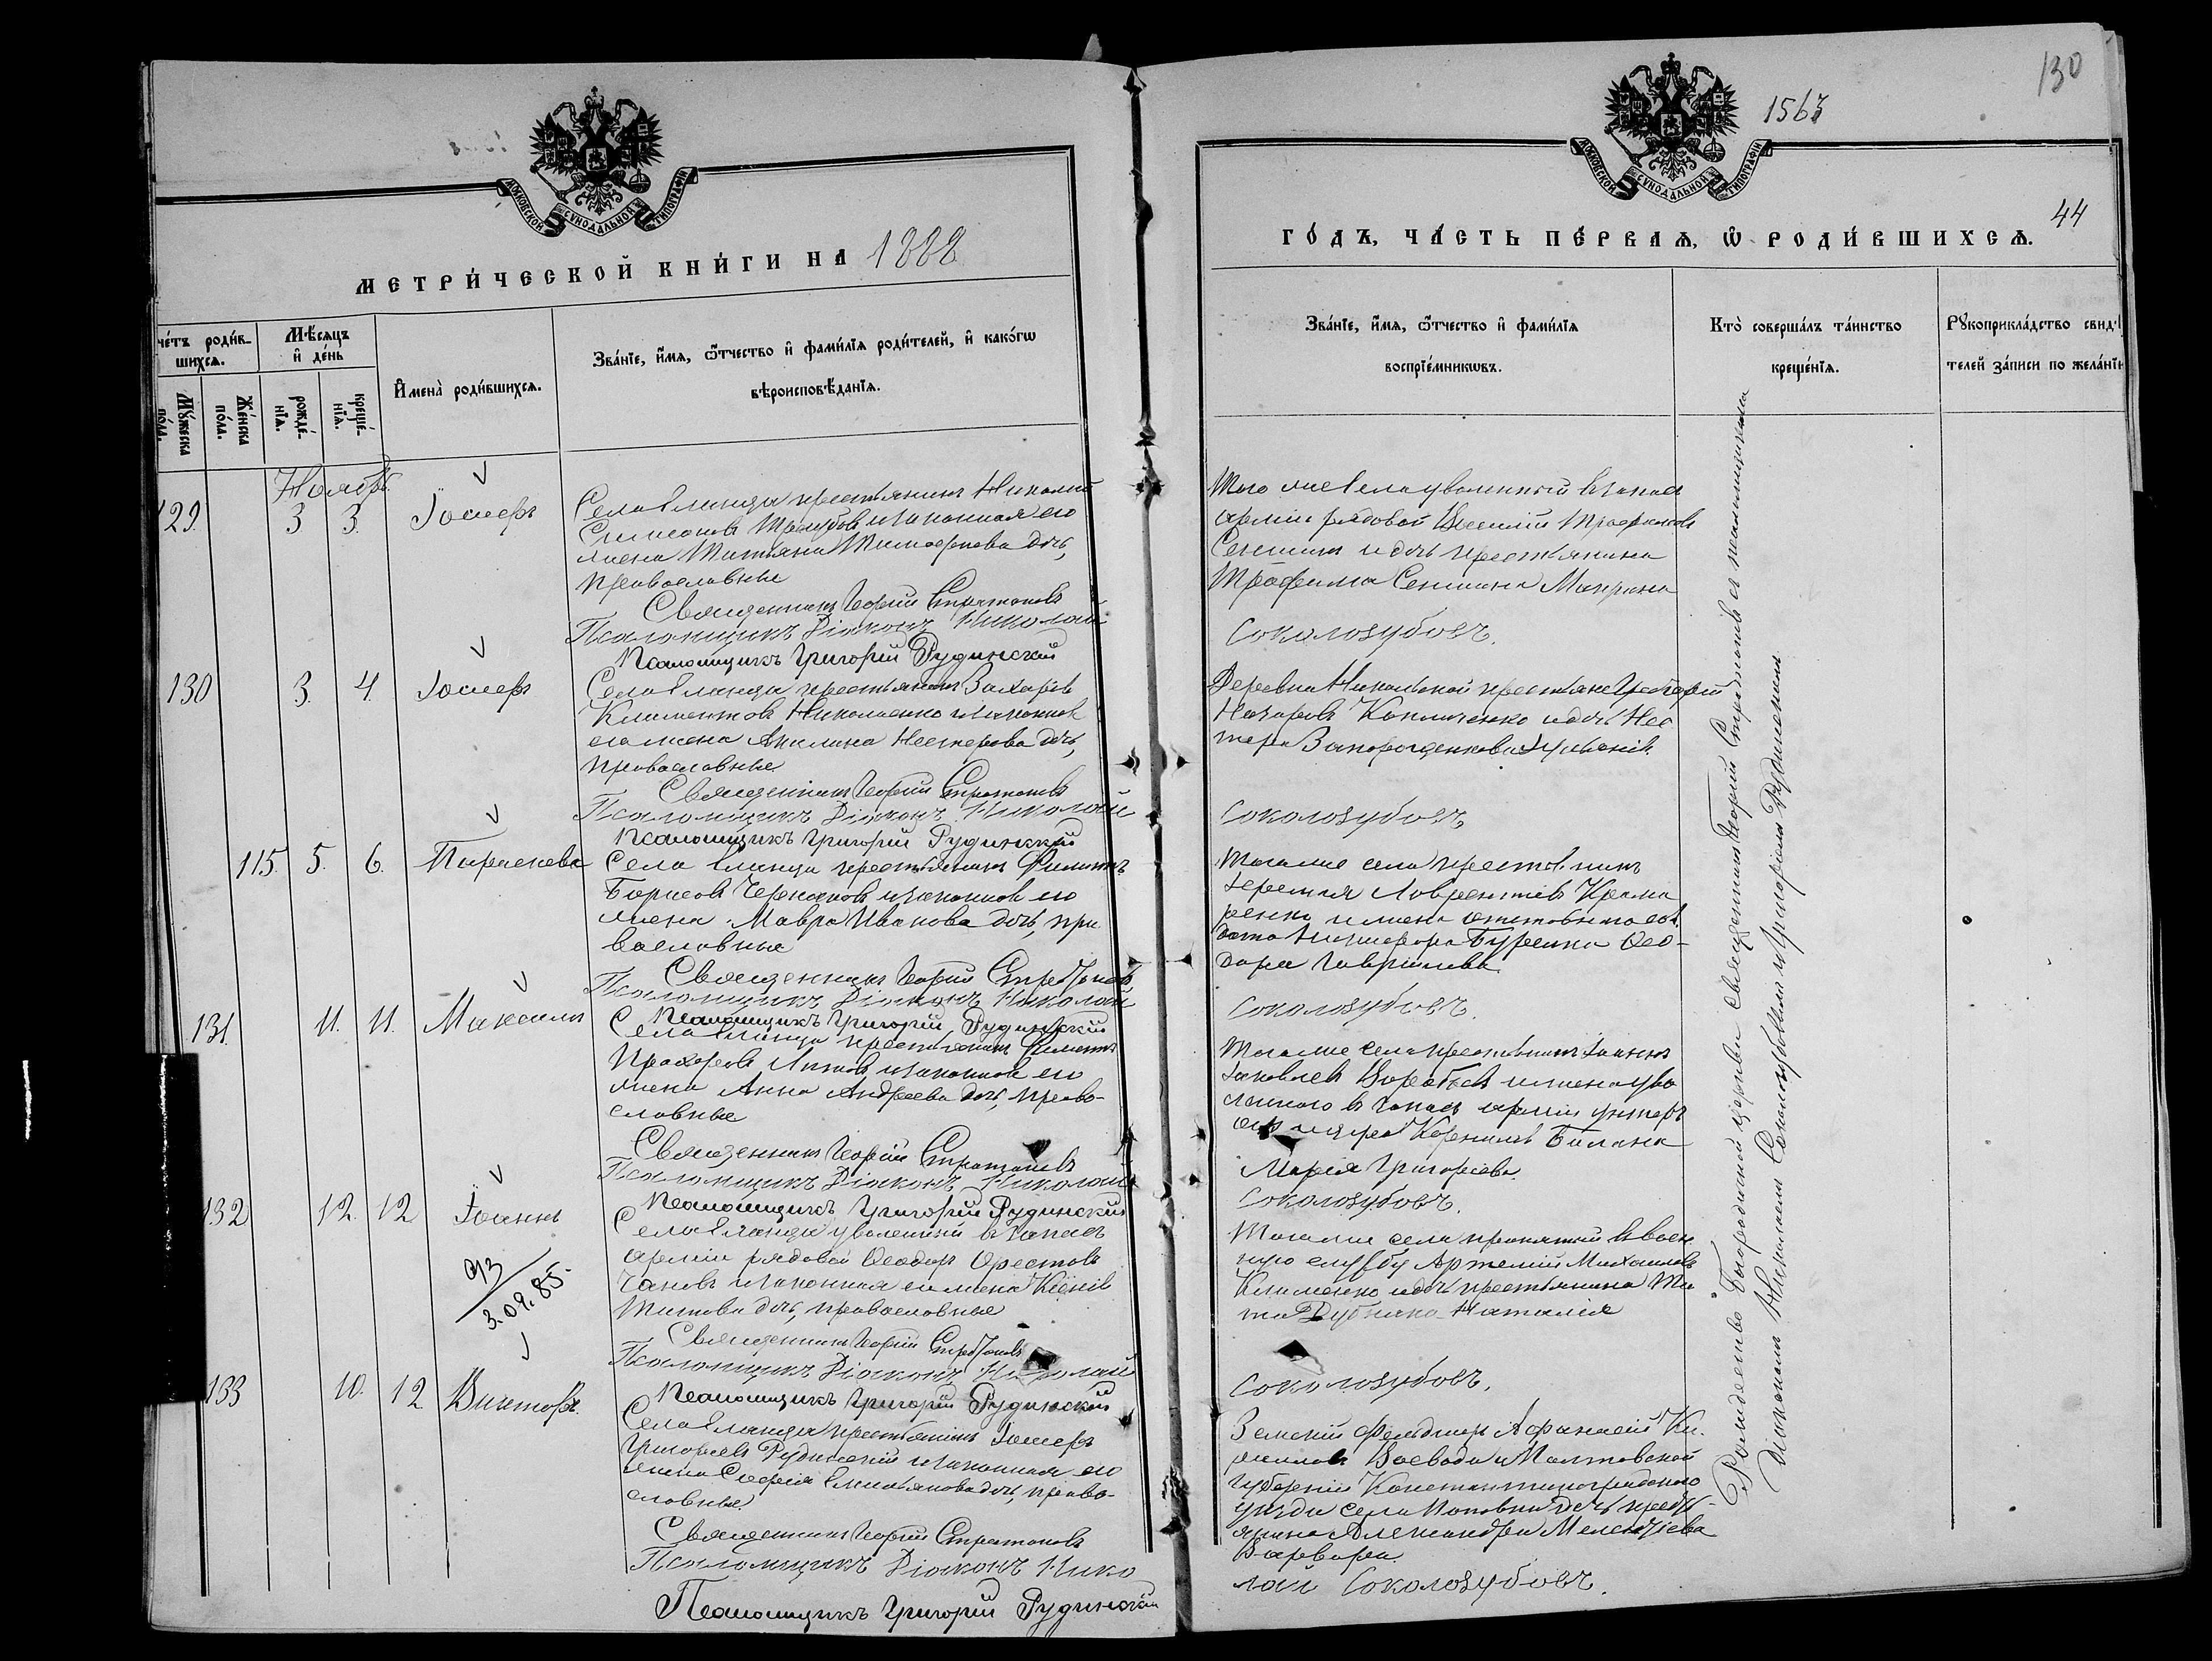 МОСКОВСКОЙ СѴНОДАЛЬНОЙ ТИПОГРАФІИ
МЕТРИ́ЧЕСКОЙ КНИ́ГИ НА 1888
че́тъ роди́в-
шихсѧ.
Мѣ́сѧцъ
и҆ де́нь
Мꙋ́жеска
по́ла.
Же́нска
по́ла.
рожде́-
нїѧ.
креще́-
нїѧ.
И҆мена̀ роди́вшихсѧ.
Зва́нїе, и҆́мѧ, ѻ҆́тчество и҆ фами́лїѧ роди́телей, и҆ како́гѡ
вѣроисповѣ́данїѧ.
Ноябрь
129. 3 3. Іосифъ
Села Еланца крестьянинъ Николай
законная его
жена Татьяна Тимофеева дочь,
православные
Священникъ Георгій Стратоновъ
Псаломщикъ Діаконъ Николай
Псаломщикъ Григорій Рудинскій
130 3. 4. Іосифъ
Села Еланца крестьянинъ Захарій
Климентовъ Николаенко и законная
его жена Акилина Нестерова дочь,
православные
Священникъ Георгій Стратоновъ
Псаломщикъ Діаконъ Николай
Псаломщикъ Григорій Рудинскій
115. 5. 6. Параскева
Села Еланца крестьянинъ Филиппъ
Борисовъ Черкасовъ и законная его
жена Мавра Иванова дочь, пра
вославные
Священникъ Георгій Стратоновъ
Псаломщикъ Діаконъ Николай
Псаломщикъ Григорій Рудинскій
131. 11. 11. Максимъ
Села Еланца крестьянинъ
Прохоровъ и законная его
жена Анна Андреева дочь, право-
славные
Священникъ Георгій Стратоновъ
Псаломщикъ Діаконъ Николай
Псаломщикъ Григорій Рудинскій
132 12. 12 Іоаннъ
3.09.85.
Села Еланца уволенный въ запасъ
арміи рядовой Ѳеодоръ Орестовъ
и законная его жена Ксенія
Титова дочь, православные
Священникъ Георгій Стратоновъ
Псаломщикъ Діаконъ Николай
Псаломщикъ Григорій Рудинскій
133 10. 12 Викторъ.
Села Еланца крестьянинъ Іосифъ
Григорьевъ Рудинскій и законная его
жена Софія Емилianова дочь, право-
славные
Священникъ Георгій Стратоновъ
Псаломщикъ Діаконъ Нико
Псаломщикъ Григорій Рудинскій
130
1563
44
МОСКОВСКОЙ СѴНОДАЛЬНОЙ ТИПОГРАФІИ
ГО́ДЪ, ЧА́СТЬ ПЕ́РВАѦ, Ѽ РОДИ́ВШИХСѦ.
Зва́нїе, и҆́мѧ, ѻ҆́тчество и҆ фами́лїѧ
воспрїе́мникѡвъ.
Кто̀ соверша́лъ та́инство
креще́нїѧ.
Рꙋкоприкла́дство свидѣ́
телей за́писи по жела́нїю
Того же села уволенный въ запасъ
арміи рядовой Василій Трофимовъ
Сенинъ и дочь крестьянина
Трофима Сенина Марина
Соколозубовъ.
Деревни Никольской крестьяне Григорій
Назаровъ и дочь Нес
тера Запорощенкова
Соколозубовъ
Того же села крестьянинъ
Іеремія Лаврентіевъ Крама
ренко и жена
Никифора Ѳео-
дора Гаврилова
Соколозубовъ.
Того же села крестьянинъ Іоаннъ
Іаковлевъ Воробьевъ и жена уво
леннаго въ запасъ арміи унтеръ
офицера Корнилія Билана
Марія Григорьева.
Соколозубовъ.
Того же села принятый въ воен
ную службу Артемій Михаиловъ
Клименко и дочь крестьянина Ти
та Дубняка Наталія
Соколозубовъ.
Земскій фельдшеръ Афанасій Ки-
рилловъ Воевода и Полтавской
губерніи Константиноградскаго
уѣзда села Поповки дочь
Александра Мелентіева
Варвара.
лай Соколозубовъ.
Рождество Богородичной церкви священникъ Георгій Стратоновъ съ псаломщиками
Діакономъ Николаемъ Соколозубовымъ и Григоріемъ Рудинскимъ